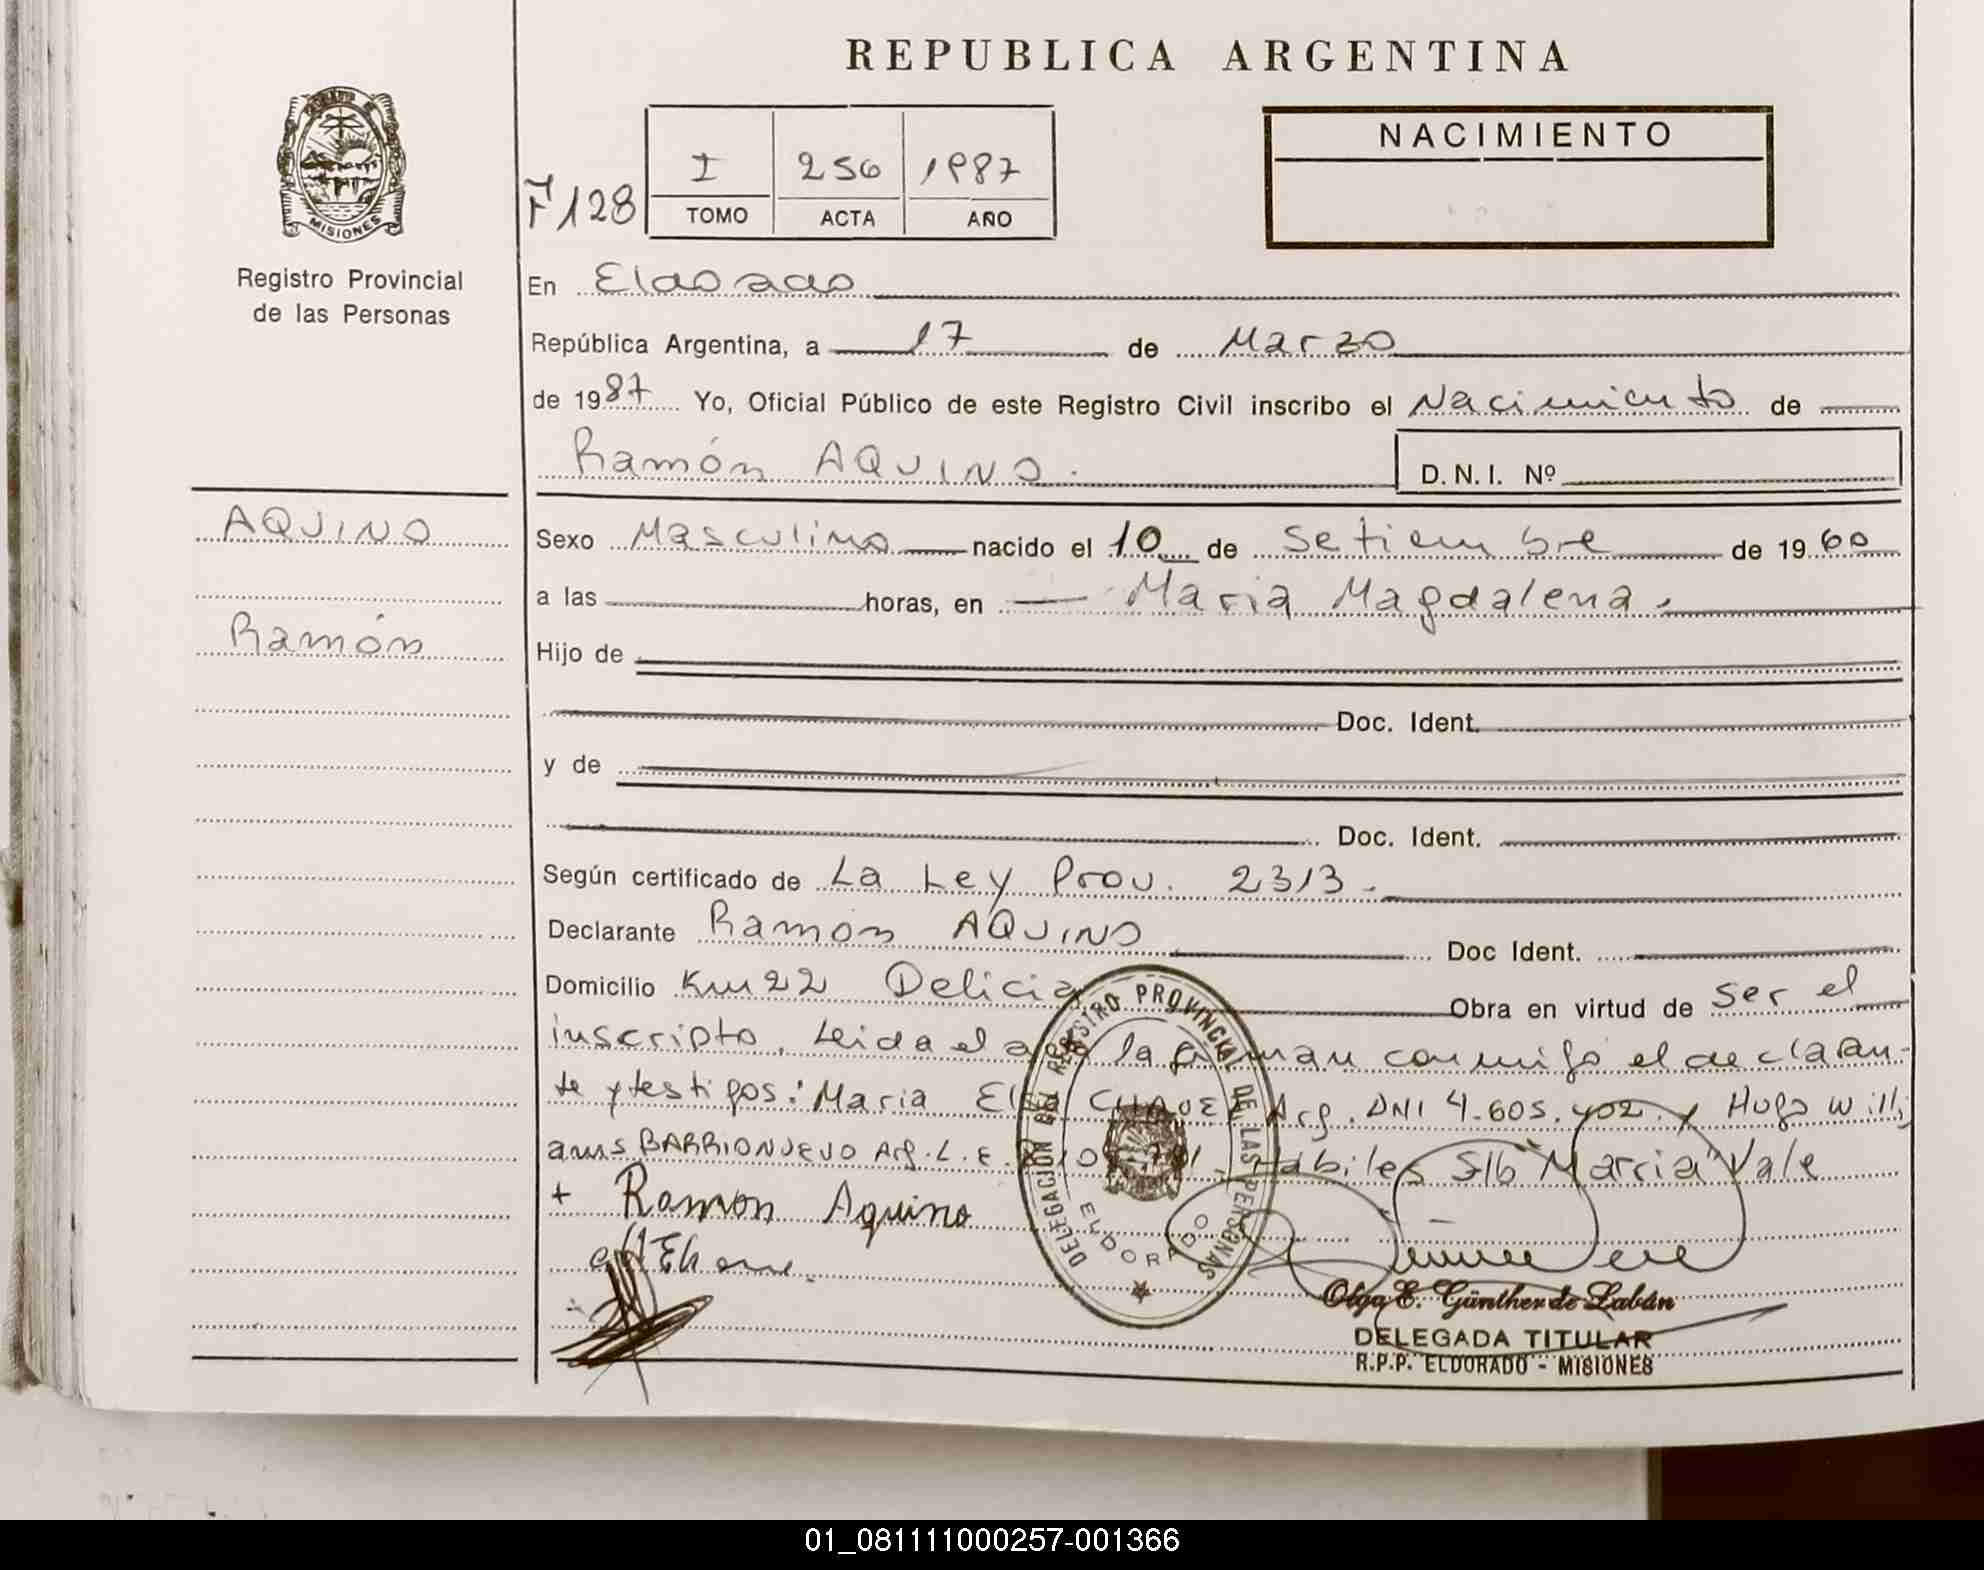 REPUBLICA ARGENTINA
NACIMIENTO
F 128
I 256 1987
TOMO ACTA AÑO
MISIONES
Registro Provincial
de las Personas
En Eldorado
República Argentina, a 17 de Marzo
de 1987 Yo, Oficial Público de este Registro Civil inscribo el Nacimiento de
Ramón AQUINO.
D.N.I. Nº
AQUINO
Ramón
Sexo Masculino nacido el 10 de Setiembre de 1960
a las horas, en María Magdalena.
Hijo de
Doc. Ident.
y de
Doc. Ident.
Según certificado de La Ley Prov. 2313.
Declarante Ramón AQUINO Doc Ident.
Domicilio Km 22 Delicia Obra en virtud de Ser el
inscripto. Leida el la firman conmigo el declaran-
te y testigos: Maria Arg. DNI 4.605.402. y Hugo Willi
ams BARRIONUEVO Arg. L.E. Habiles S/b "Marcia" Vale
+ Ramon Aquino
DELEGACION DEL REGISTRO PROVINCIAL DE LAS PERSONAS
ELDORADO
Olga E. Günther de Labán
DELEGADA TITULAR
R.P.P. ELDORADO - MISIONES
01_081111000257-001366